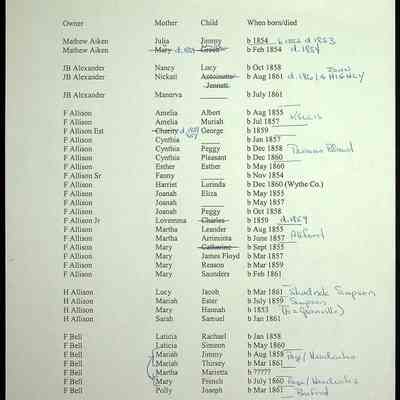 Owner Mother Child When born/died
Mathew Aiken Julia Jimmy b 1854 d 1853
Mathew Aiken Mary d. 1854 Green b Feb 1854 d. 1854
JB Alexander Nancy Lucy b Oct 1858
JB Alexander Nickati Antoinette b Aug 1861 d. 1861
Jennett
JB Alexander Manerva ____ b July 1861
F Allison Amelia Albert b Aug 1855
F Allison Amelia Muriah b Jul 1857
F Allison Est Charity George b 1859
F Allison Cynthia ____ b Jan 1857
F Allison Cynthia Peggy b Dec 1858
F Allison Cynthia Pleasant b Dec 1860
F Allison Esther Esther b May 1860
F Allison Sr Fanny ____ b Nov 1854
F Allison Harriet Lurinda b Dec 1860 (Wythe Co.)
F Allison Joanah Eliza b May 1855
F Allison Joanah ____ b May 1857
F Allison Joanah Peggy b Oct 1858
F Allison Jr Lovemma Charles b 1859 d. 1859
F Allison Martha Leander b Aug 1855
F Allison Martha Artiminta b June 1857
F Allison Mary Catharine b Sept 1855
F Allison Mary James Floyd b Mar 1857
F Allison Mary Reason b Mar 1859
F Allison Mary Saunders b Feb 1861
H Allison Lucy Jacob b Mar 1861 Shadrick Simpson
H Allison Mariah Ester b July 1859 Simpson
H Allison Mary Hannah b 1853
H Allison Sarah Samuel b Jan 1861
F Bell Laticia Rachael b Jan 1858
F Bell Laticia Simeon b May 1860
F Bell Mariah Jimmy b Aug 1858
F Bell Mariah Thirsey b Mar 1861
F Bell Martha Marietta b ?????
F Bell Mary French b July 1860
F Bell Polly Joseph b Mar 1861